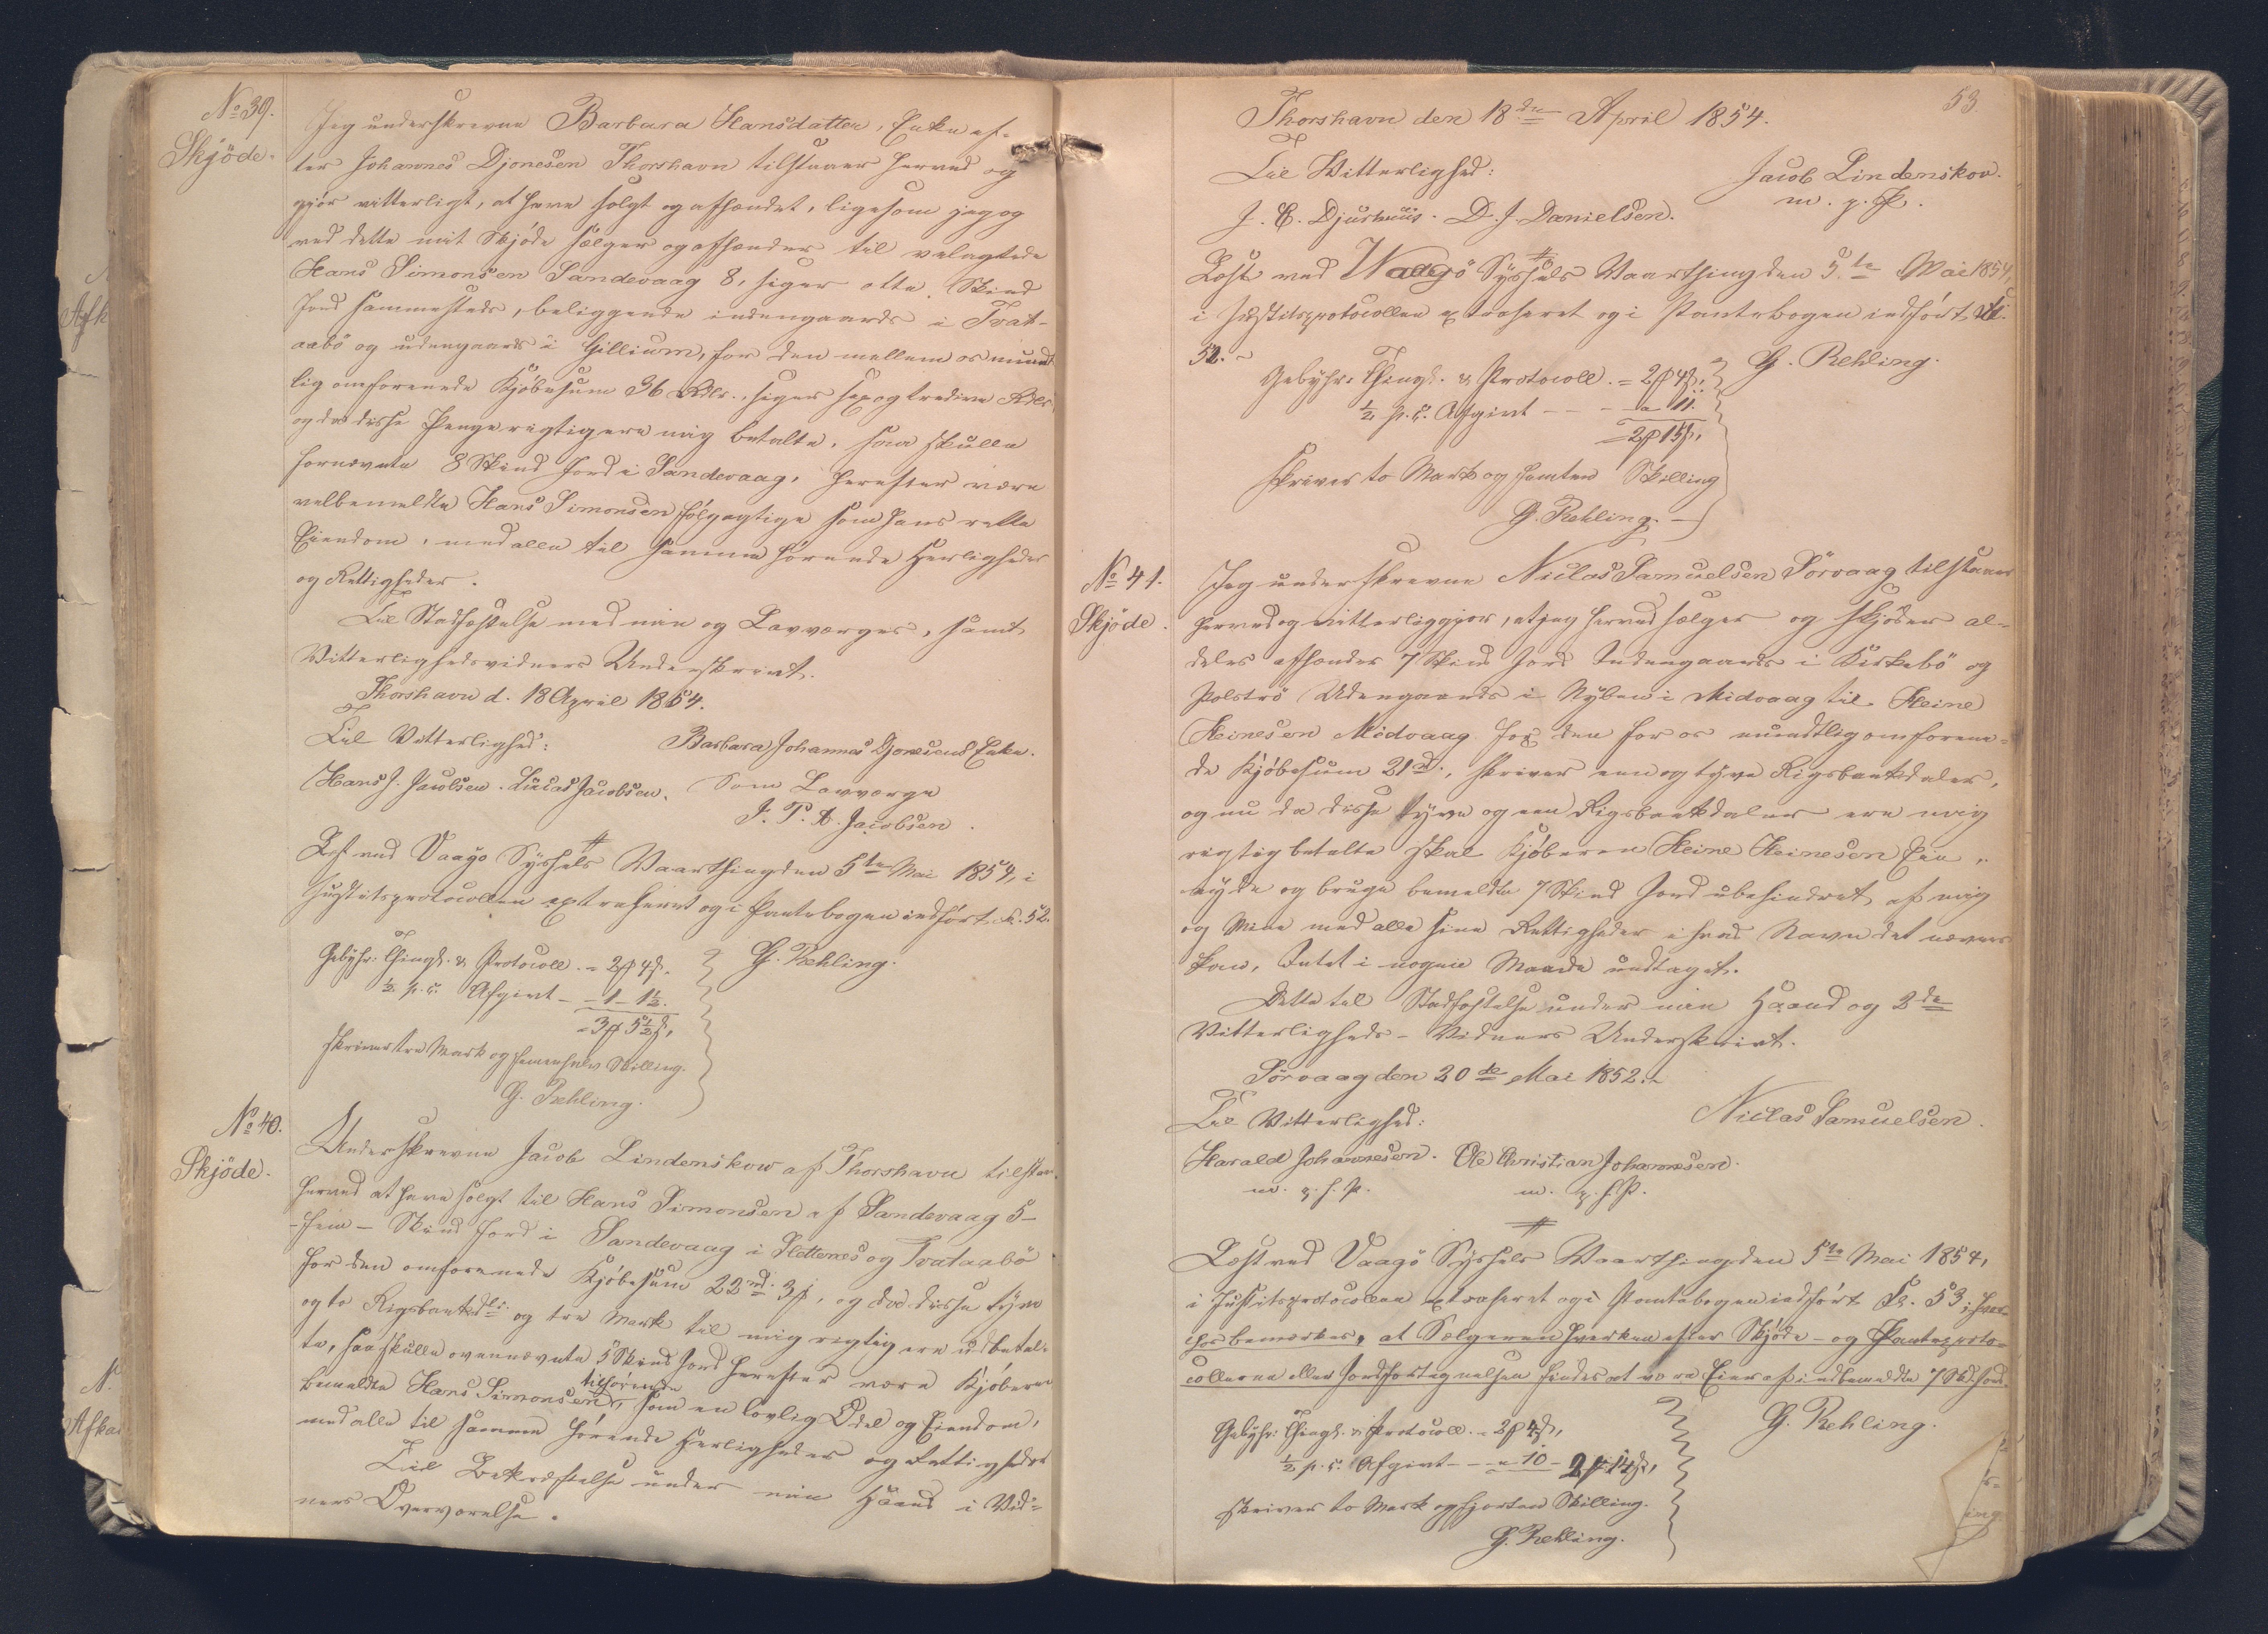 No 39.
Skjöde.
Jeg underskrevne Barbara Hansdatter, Enke ef-
ter Johannes Djonesen Thorshavn tilstaaer herved og
gjør vitterligt, at have solgt og afhændet, ligesom jeg og
ved dette mit Skjöde sælger og afhænder til velagtede
Hans Simonsen Sandevaag 8, siger otte, Skind
Jord sammesteds, beliggende indengaards i Tvat-
aabö og udengaards i Gillium, for den mellem os mundt
lig omforenede Kjöbesum 36 Rdlr., siger sex og tredive Rdlr
og da disse Penge rigtig ere mig betalte, saa skulle
fornævnte 8 Skind Jord i Sandevaag, herefter være
velbemeldte Hans Simonsen følgagtige som hans rette
Eiendom, med alle til samme hörende Herligheder
og Rettigheder.
Til Stadfæstelse med min og Lavværges, samt
Vitterlighedsvidners Underskrivt.
Thorshavn d. 18 April 1854.
Til Vitterlighed:
Barbara Johannes Djonesens Enke.
Hans J. Jacobsen. Lucas Jacobsen.
Som Lavværge
J. P. Jacobsen.
Læst ved Vaagö Syssels Vaarthing den 5te Mai 1854, i
Justitsprotocollen extraheret og i Pantebogen indfört Fol. 52.
G. Rehling.
Gebyhr: Thingl. & Protocoll. = 2 ₻ 4 ß.
½ p. C. Afgivt - - 1 - 1½.
= 3 ₻ 5½ ß,
skriver tre Mark og femehalv Skilling.
G. Rehling.
No 40.
Skjöde.
Underskrevne Jacob Lindenskow af Thorshavn tilstaar
herved at have solgt til Hans Simonsen af Sandevaag 5-
-fem- Skind Jord i Sandevaag i Slettenes og Tvataabö
for den omforenede Kjöbesum 22 rd. 3 ₻, og da disse tyve
og to Rigsbankdlr. og tre Mark til mig rigtig ere udbetal-
te, saa skulle ovennævnte 5 Skind Jord herefter være Kjöberen
bemeldte Hans Simonsen tilhörende, som en lovlig Odel og Eiendom,
med alle til samme hörende Herligheder og Rettigheder
Til Bekræftelse under min Haand i Vid-
ners Overværelse.
53
Thorshavn den 18de April 1854.
Til Vitterlighed:
Jacob Lindenskov.
m. p. P.
J. E. Djurhuus. D. J. Danielsen.
Læst ved Waagö Syssels Vaarthing den 5te Mai 1854,
i Justitsprotocollen extraheret og i Pantebogen indfört Fol.
52.
G. Rehling.
Gebyhr: Thingl. & Protocoll. = 2 ₻ 4 ß.
½ p. C. Afgivt - - - 11.
= 2 ₻ 15 ß,
skriver to Mark og femten Skilling
G. Rehling.
No 41.
Skjöde.
Jeg underskrevne Niclas Samuelsen Sörvaag tilstaaer
herved og vitterliggjör, at jeg herved sælger og skjöder al-
deles afhænder 7 Skind Jord Indengaards i Kirkebö og
Udengaards i i Midvaag til Heine
Heinesen Midvaag for den for os mundtlig omforene-
de Kjöbesum 21 rd., skriver een og tyve Rigsbankdaler,
og nu da disse tyve og een Rigsbankdaler ere mig
rigtig betalte skal Kjöberen Heine Heinesen eie,
nyde og bruge bemeldte 7 Skind Jord ubehindret af mig
og Mine med alle sine Rettigheder i hvad Navn det nævnes
kan, Intet i nogen Maade undtaget.
Dette til Stadfæstelse under min Haand og 2de
Vitterligheds-Vidners Underskrivt.
Sörvaag den 20de Mai 1852.
Til Vitterlighed:
Niclas Samuelsen.
Harald Johannesen. Ole Christian Johannesen.
m. p. f. P. m. p. f. P.
Læst ved Vaagö Syssels Vaarthing den 5te Mai 1854,
i Justitsprotocollen extraheret og i Pantebogen indfört Fol. 53; hver-
hos bemærkes, at Sælgeren hverken efter Skjöde- og Panteproto-
collerne eller Jordfortegnelsen findes at være Eier af indbemeldte 7 Skd. Jord.
G. Rehling.
Gebyhr: Thingl. & Protocoll. = 2 ₻ 4 ß,
½ p. C. Afgivt - - - 10 - 2 ₻ 14 ß,
skriver to Mark og fjorten Skilling.
G. Rehling.